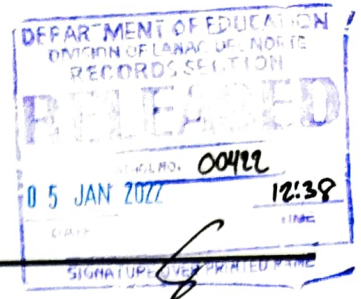 DEPARTMENT OF EDUCATION
DIVISION OF LANAO DEL NORTE
RECORDS SECTION
RELEASED
00422
05 JAN 2022 12:38
DATE TIME
SIGNATURE OVER PRINTED NAME